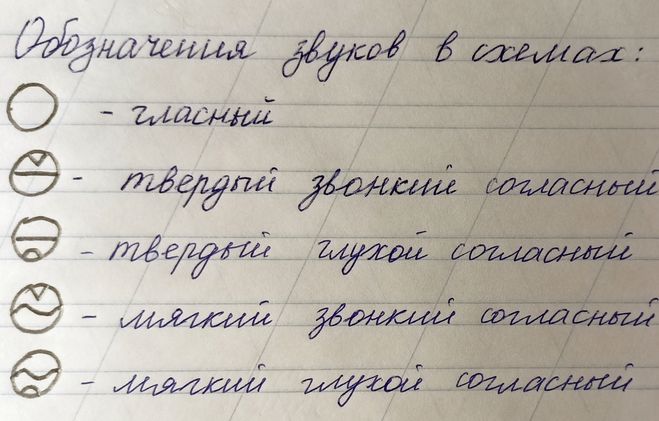 Обозначения звуков в схемах:
- гласный
- твердый звонкий согласный
- твердый глухой согласный
- мягкий звонкий согласный
- мягкий глухой согласный